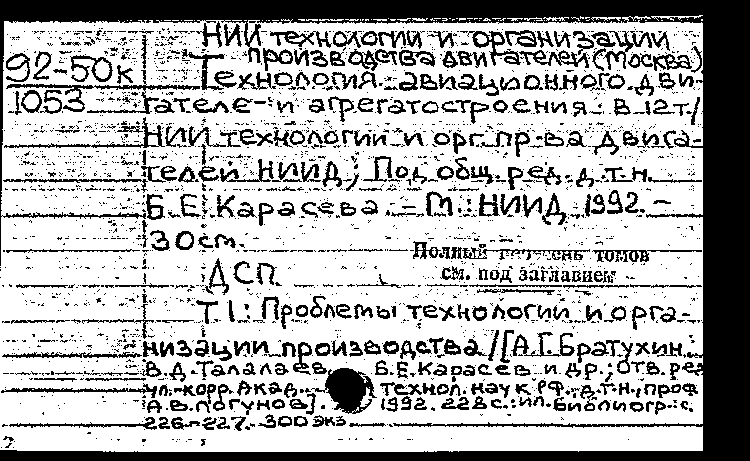 НИИ технологии и организации
производства двигателей (Москва)
92-50к
1053
Технология авиационного дви-
гателе- и агрегатостроения: В 12т/
НИИ технологии и орг. пр-ва двига-
телей НИИД; Под общ. ред. д.т.н.
Б.Е. Карасева. – М.: НИИД, 1992. –
30см.
Полный перечень томов
см. под заглавием
ДСП
Т 1: Проблемы технологии и орга-
низации производства / [А.Г. Братухин,
В.Д. Талалаев, Б.Е. Карасев и др.; Отв. ред.
чл.-корр. Акад. технол. наук РФ, д.т.н., проф.
А.В. Логунов]. 1992. 228с.: ил. Библиогр.: с.
226-227. 300 экз.